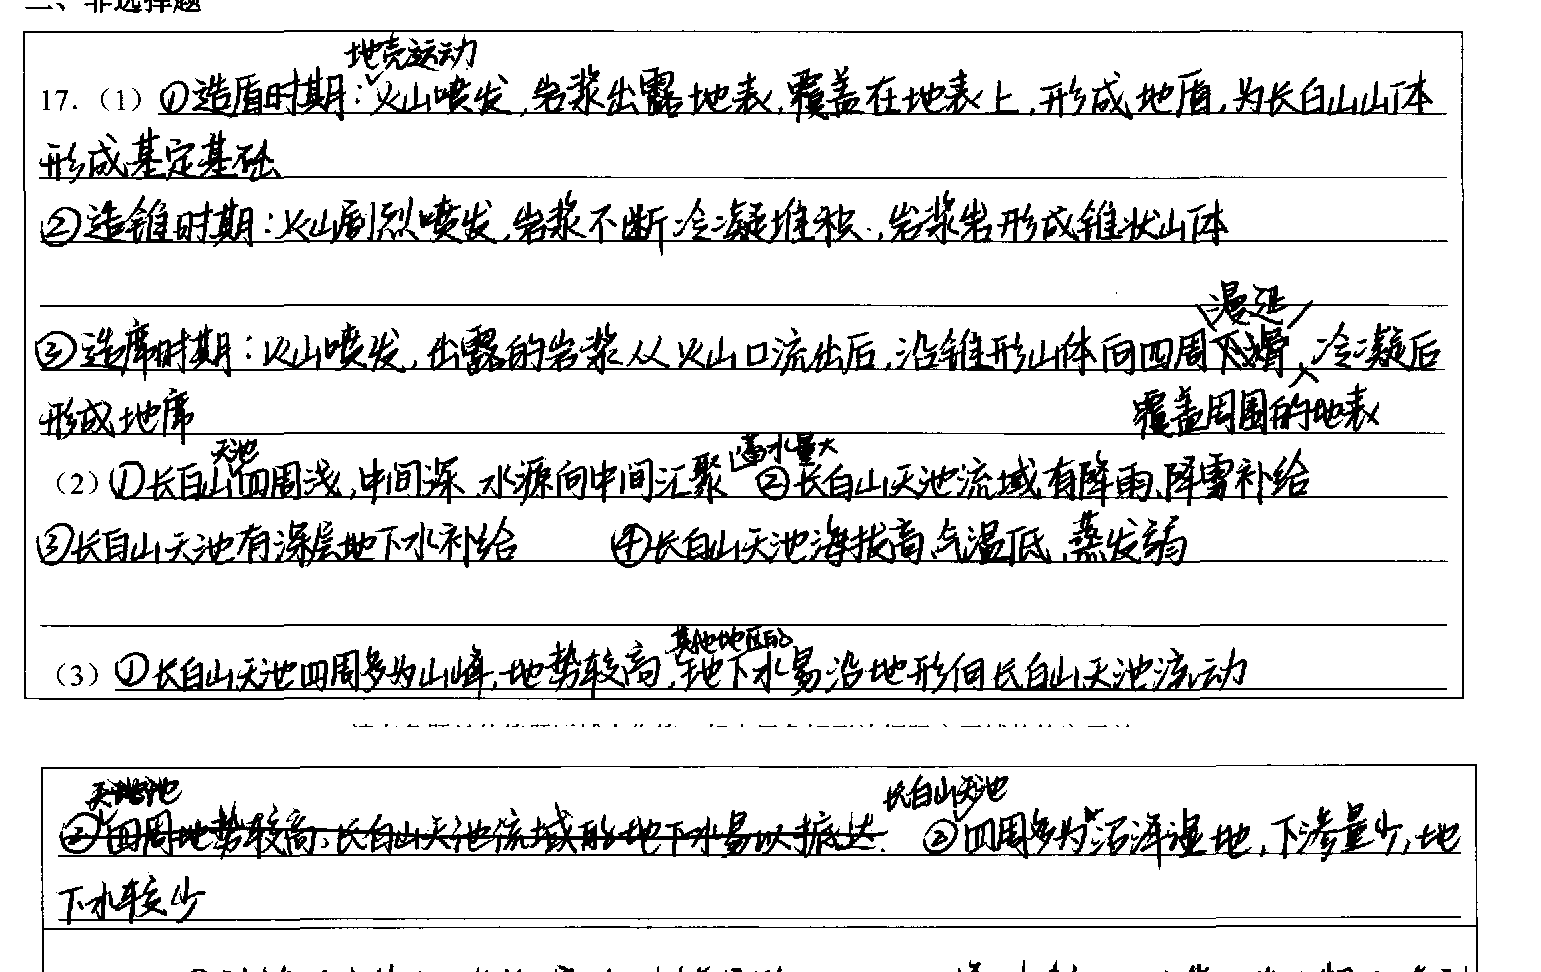 二、非选择题
地壳运动
17.（1）①造盾时期：火山喷发，岩浆出露地表，覆盖在地表上，形成地盾，为长白山山体
形成基定基础
②造锥时期：火山剧烈喷发，岩浆不断冷凝堆积，岩浆岩形成锥状山体
漫延
③造席时期：火山喷发，出露的岩浆从火山口流出后，沿锥形山体向四周下滑，冷凝后
形成地席
覆盖周围的地表
天池
蓄水量大
（2）①长白山四周浅，中间深，水源向中间汇聚 ②长白山天池流域有降雨、降雪补给
③长白山天池有深层地下水补给 ④长白山天池海拔高，气温低，蒸发弱
其他地区的
（3）①长白山天池四周多为山峰，地势较高，地下水易沿地形向长白山天池流动
长白山天池
②四周地势较高，长白山天池流域的地下水易以抵达 ②四周多为沼泽湿地，下渗量少，地
下水较少